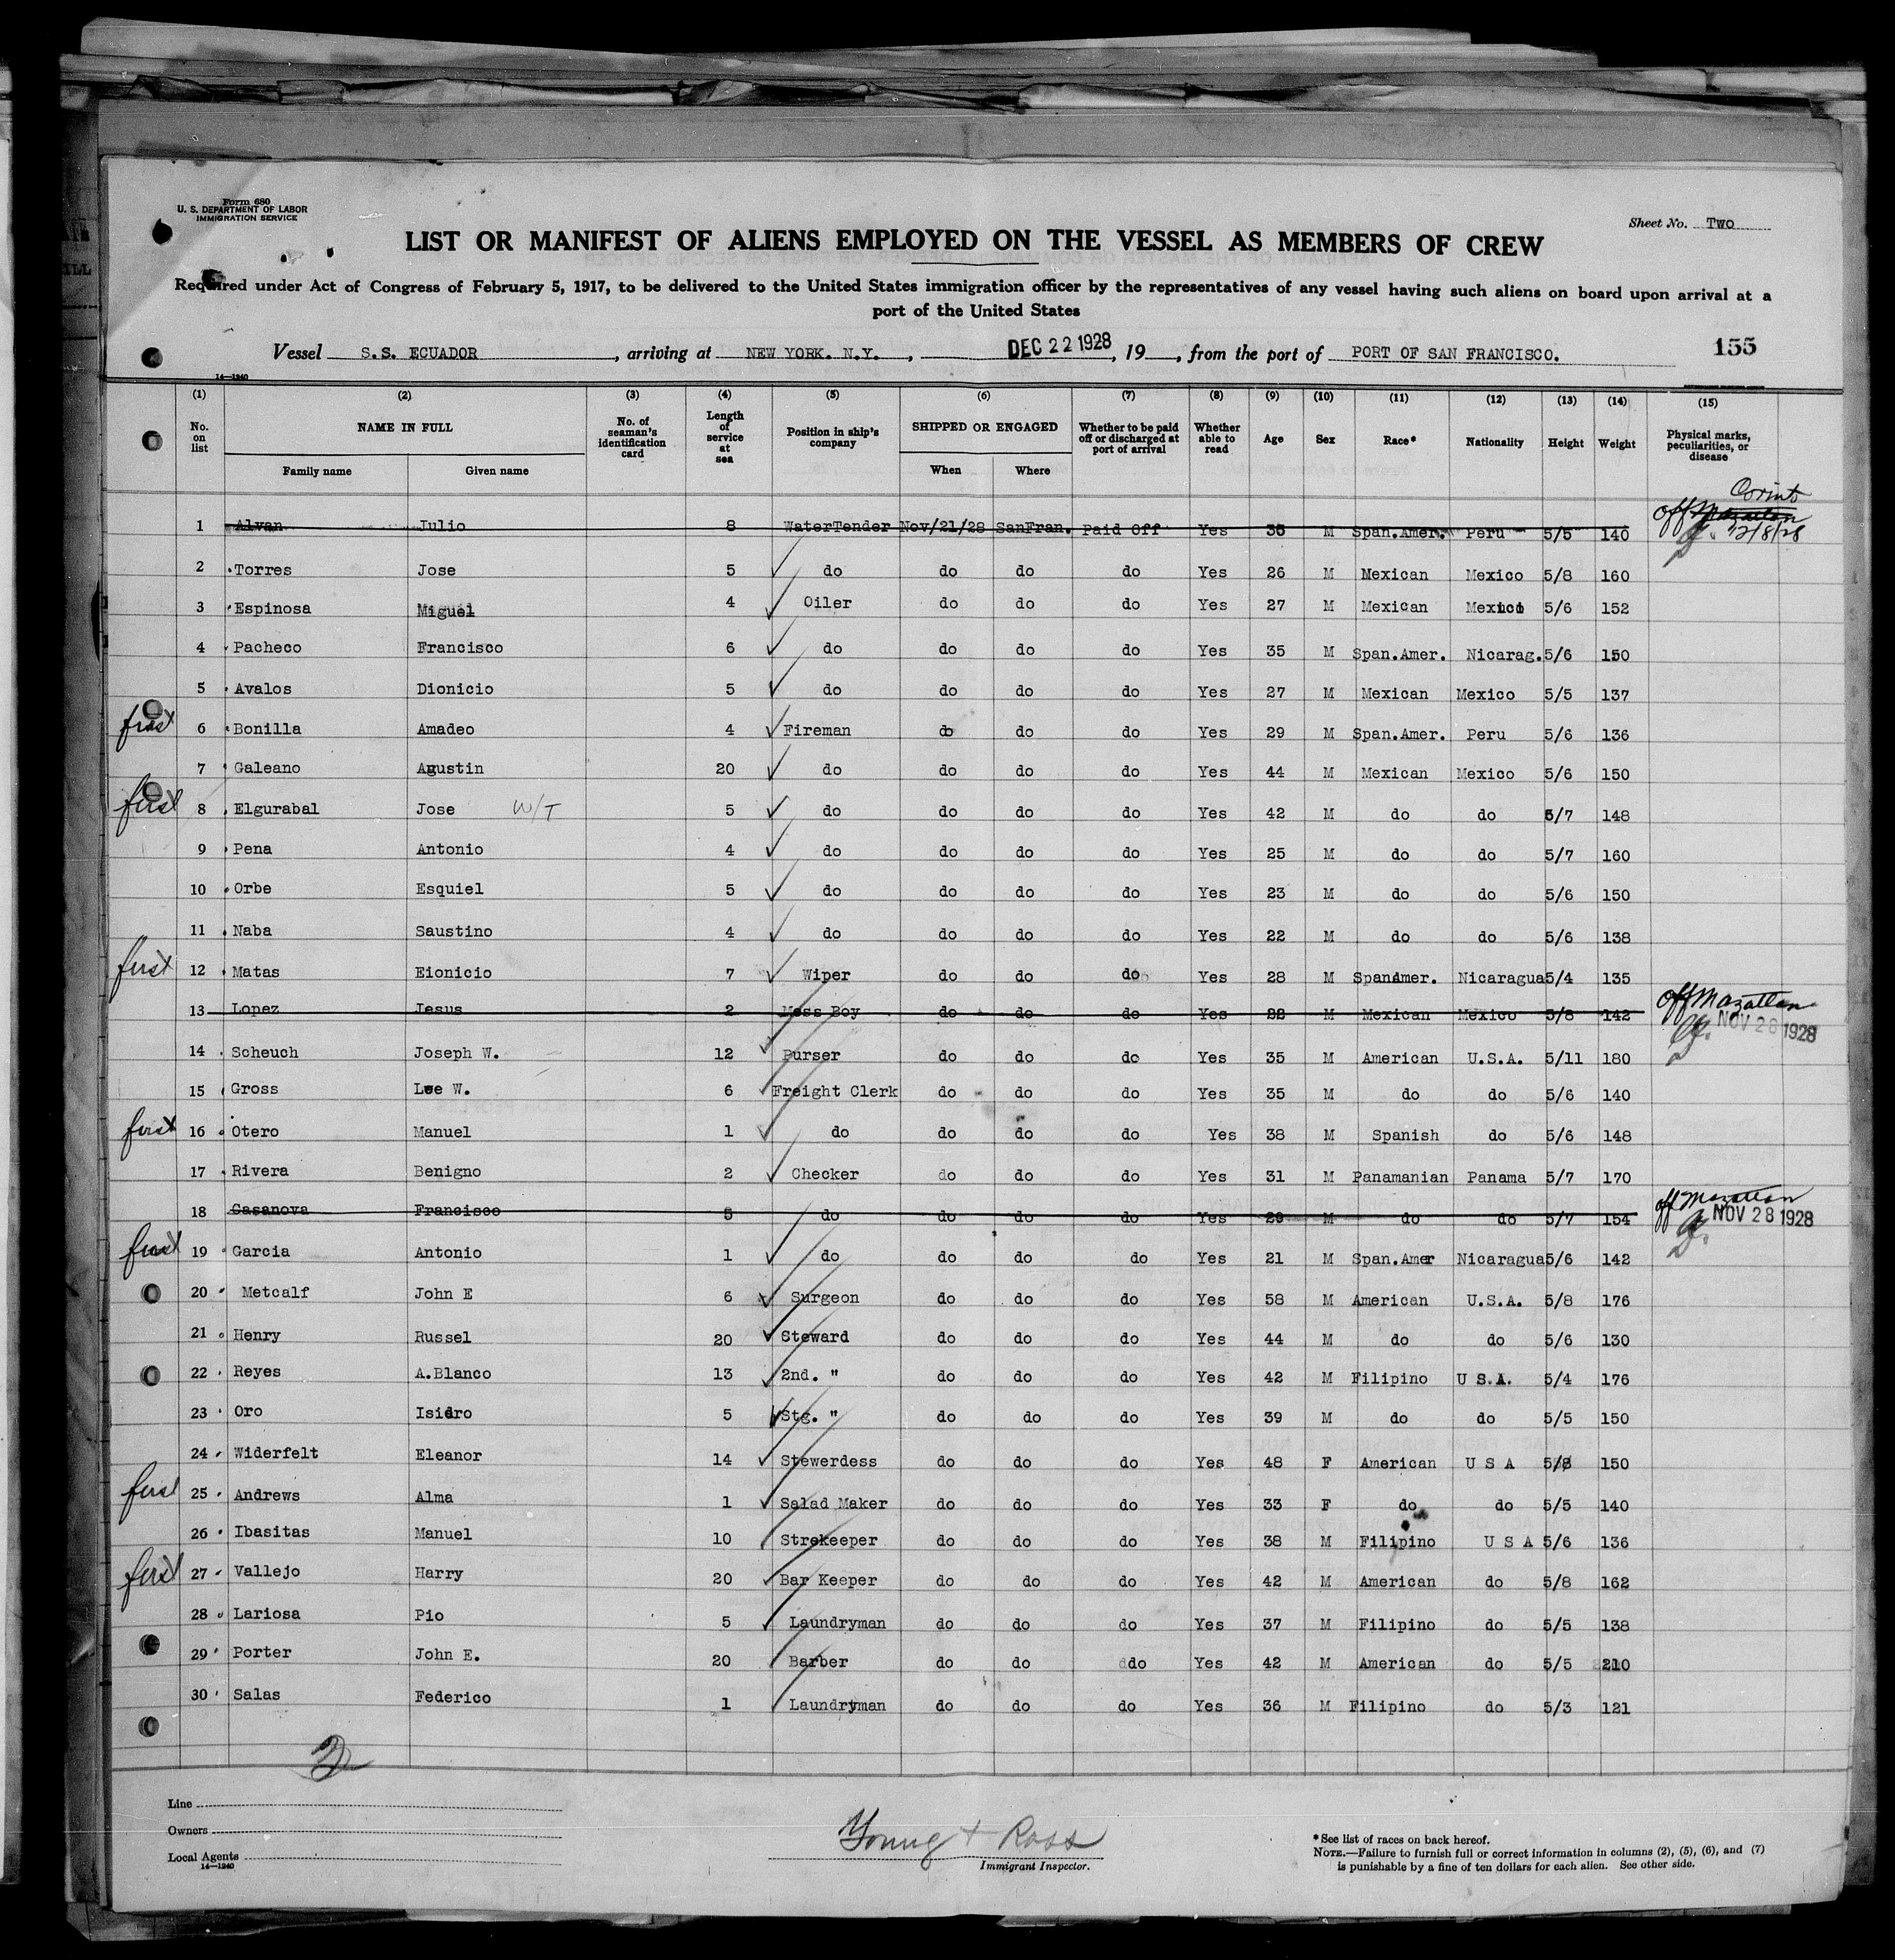 Form 680
U. S. DEPARTMENT OF LABOR
IMMIGRATION SERVICE
Sheet No. Two
LIST OR MANIFEST OF ALIENS EMPLOYED ON THE VESSEL AS MEMBERS OF CREW
Required under Act of Congress of February 5, 1917, to be delivered to the United States immigration officer by the representatives of any vessel having such aliens on board upon arrival at a
port of the United States
Vessel S.S. ECUADOR, arriving at NEW YORK. N.Y., DEC 22 1928, 19, from the port of PORT OF SAN FRANCISCO. 155
14—1240
(1) (2) (3) (4) (5) (6) (7) (8) (9) (10) (11) (12) (13) (14) (15)
No. on list NAME IN FULL No. of seaman's identification card Length of service at sea Position in ship's company SHIPPED OR ENGAGED Whether to be paid off or discharged at port of arrival Whether able to read Age Sex Race* Nationality Height Weight Physical marks, peculiarities, or disease
Family name Given name When Where
Corinto
1 Alvan Julio 8 WaterTender Nov/21/28 SanFran. Paid Off Yes 35 M Span.Amer. Peru 5/5 140 off Mazatlan
12/8/28
2 Torres Jose 5 do do do do Yes 26 M Mexican Mexico 5/8 160
3 Espinosa Miguel 4 Oiler do do do Yes 27 M Mexican Mexico 5/6 152
4 Pacheco Francisco 6 do do do do Yes 35 M Span.Amer. Nicarag. 5/6 150
5 Avalos Dionicio 5 do do do do Yes 27 M Mexican Mexico 5/5 137
first 6 Bonilla Amadeo 4 Fireman do do do Yes 29 M Span.Amer. Peru 5/6 136
7 Galeano Agustin 20 do do do do Yes 44 M Mexican Mexico 5/6 150
first 8 Elgurabal Jose W/T 5 do do do do Yes 42 M do do 5/7 148
9 Pena Antonio 4 do do do do Yes 25 M do do 5/7 160
10 Orbe Esquiel 5 do do do do Yes 23 M do do 5/6 150
11 Naba Saustino 4 do do do do Yes 22 M do do 5/6 138
first 12 Matas Eionicio 7 Wiper do do do Yes 28 M SpanAmer. Nicaragua 5/4 135
13 Lopez Jesus 2 Mess Boy do do do Yes 22 M Mexican Mexico 5/8 142 off Mazatlan
NOV 28 1928
14 Scheuch Joseph W. 12 Purser do do do Yes 35 M American U.S.A. 5/11 180
15 Gross Lee W. 6 Freight Clerk do do do Yes 35 M do do 5/6 140
first 16 Otero Manuel 1 do do do do Yes 38 M Spanish do 5/6 148
17 Rivera Benigno 2 Checker do do do Yes 31 M Panamanian Panama 5/7 170
18 Casanova Francisco 5 do do do do Yes 29 M do do 5/7 154 off Mazatlan
NOV 28 1928
first 19 Garcia Antonio 1 do do do do Yes 21 M Span.Amer Nicaragua 5/6 142
20 Metcalf John E 6 Surgeon do do do Yes 58 M American U.S.A. 5/8 176
21 Henry Russel 20 Steward do do do Yes 44 M do do 5/6 130
22 Reyes A.Blanco 13 2nd. " do do do Yes 42 M Filipino U S.A. 5/4 176
23 Oro Isidro 5 Stg. " do do do Yes 39 M do do 5/5 150
24 Widerfelt Eleanor 14 Stewerdess do do do Yes 48 F American U S A 5/8 150
first 25 Andrews Alma 1 Salad Maker do do do Yes 33 F do do 5/5 140
26 Ibasitas Manuel 10 Strekeeper do do do Yes 38 M Filipino U S A 5/6 136
first 27 Vallejo Harry 20 Bar Keeper do do do Yes 42 M American do 5/8 162
28 Lariosa Pio 5 Laundryman do do do Yes 37 M Filipino do 5/5 138
29 Porter John E. 20 Barber do do do Yes 42 M American do 5/5 210
30 Salas Federico 1 Laundryman do do do Yes 36 M Filipino do 5/3 121
2
Line
Owners
Local Agents
14—1240
Young + Ross
Immigrant Inspector.
*See list of races on back hereof.
NOTE.—Failure to furnish full or correct information in columns (2), (5), (6), and (7)
is punishable by a fine of ten dollars for each alien. See other side.